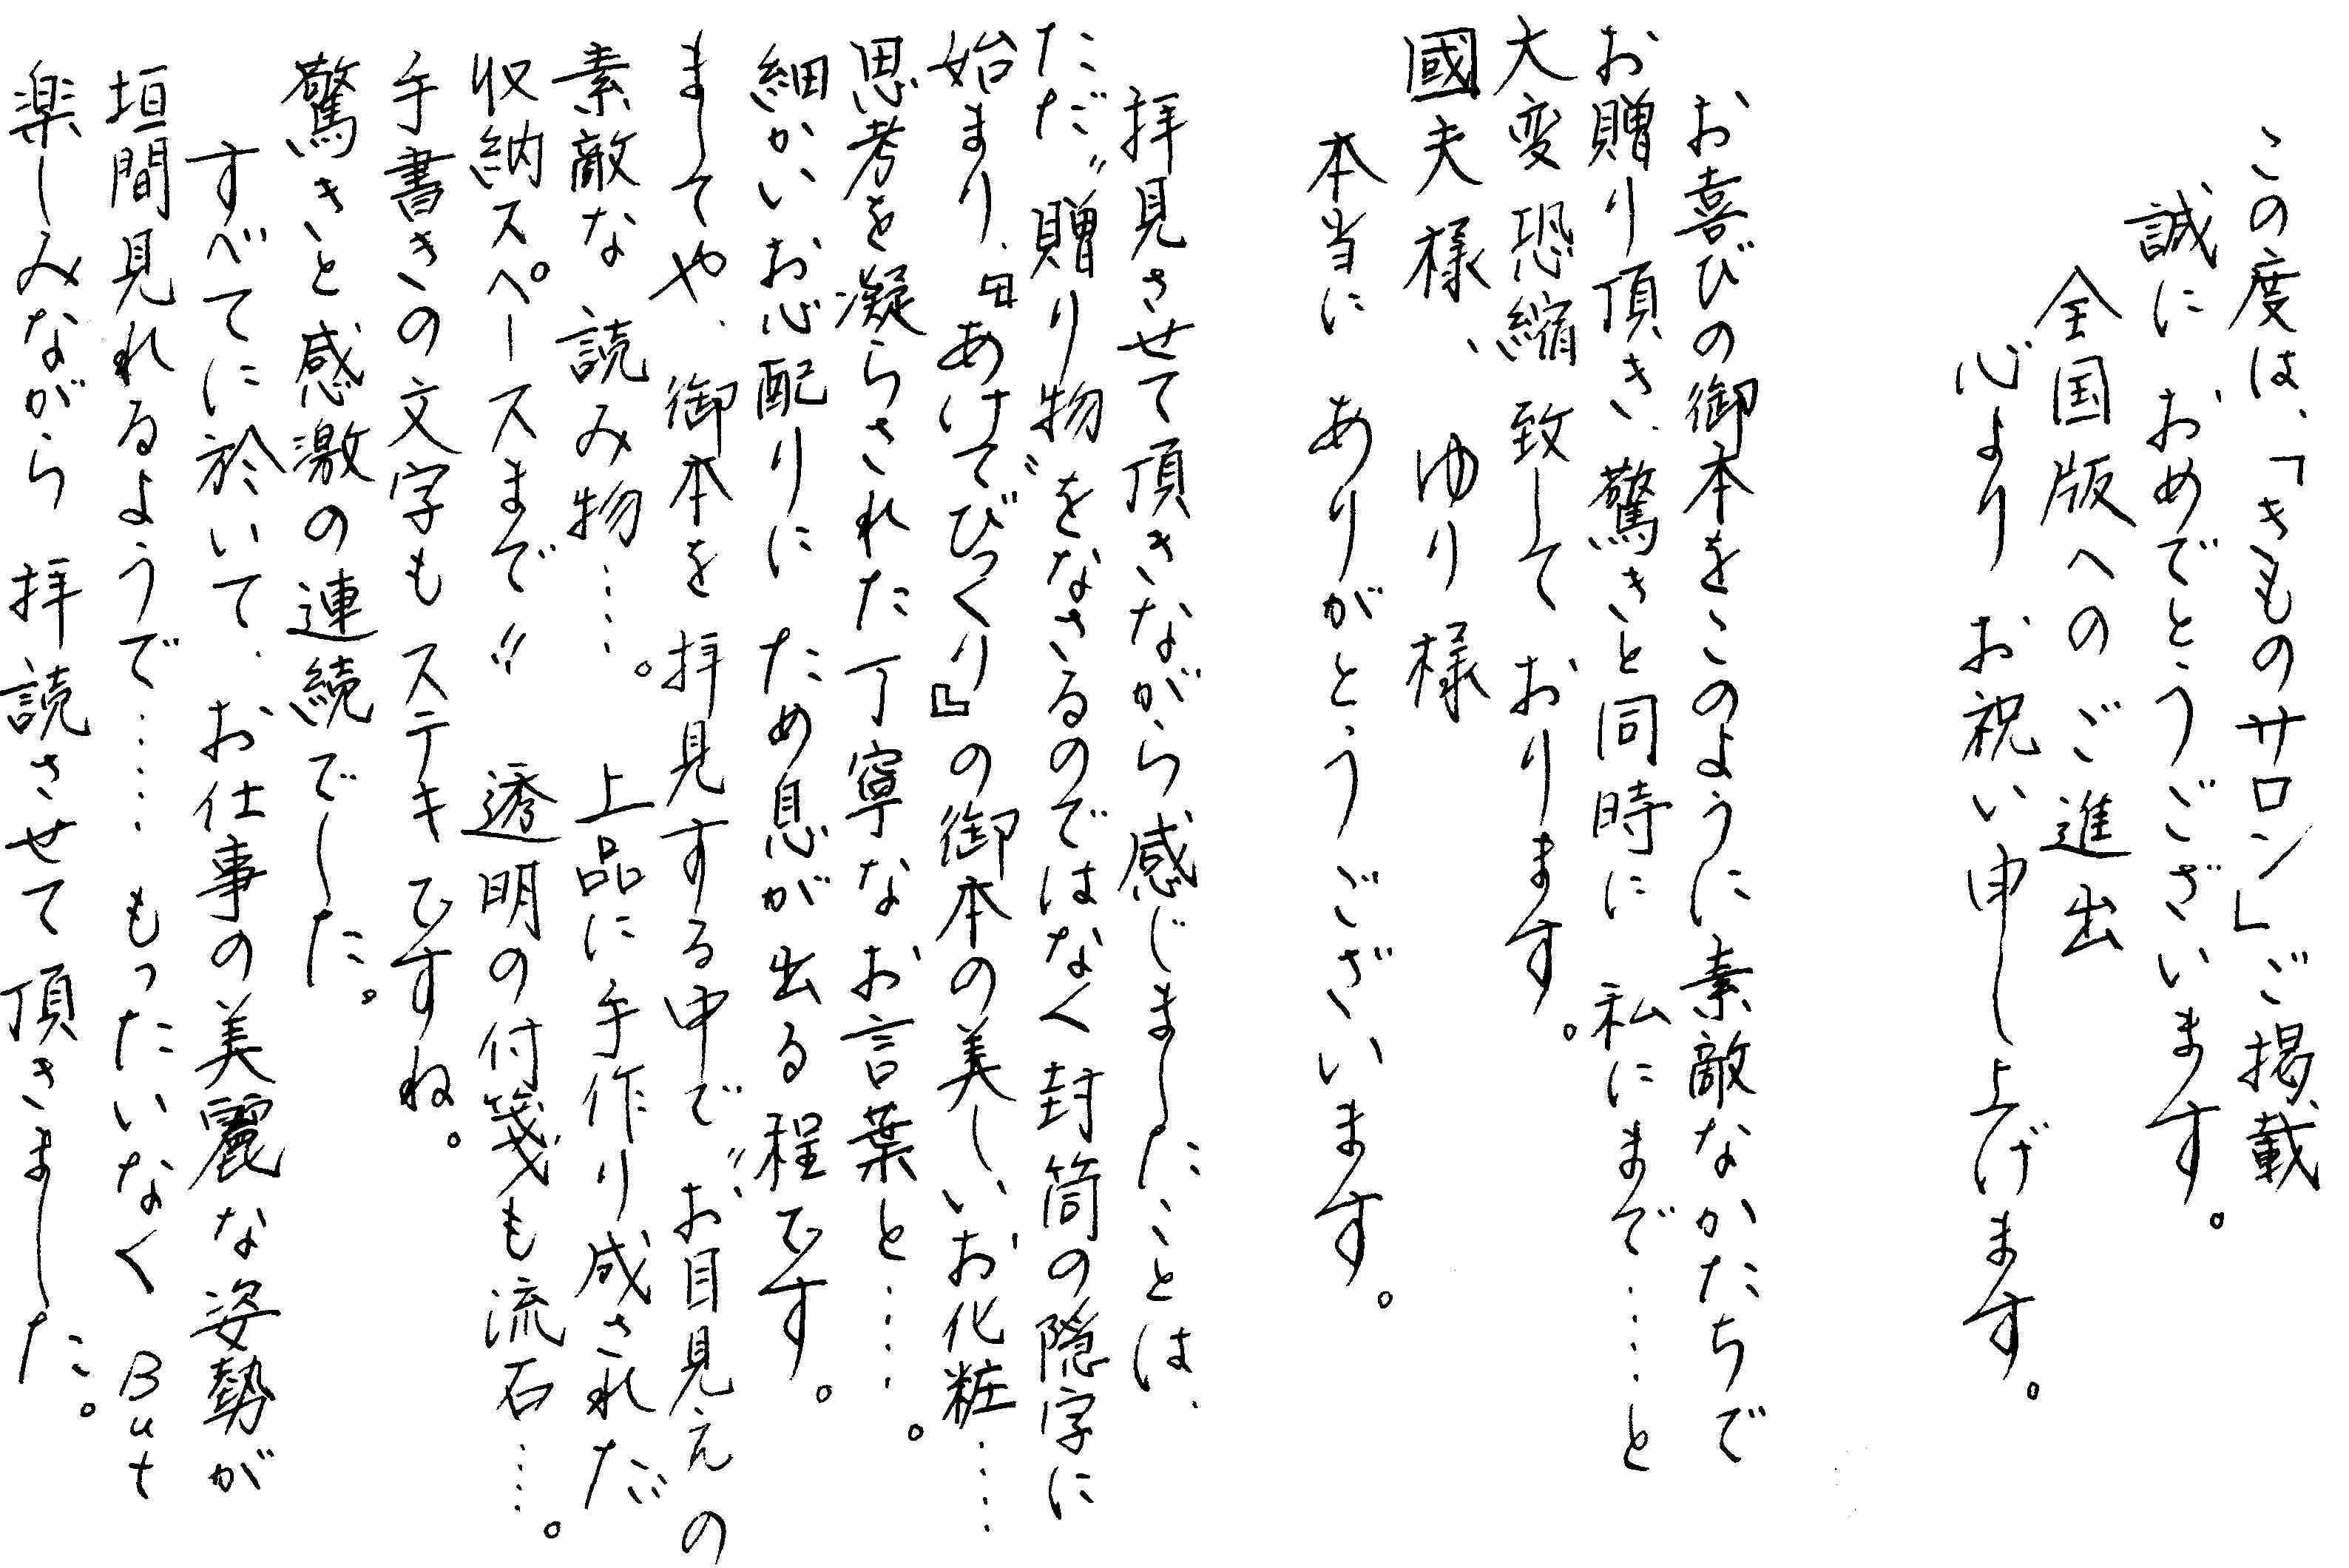 この度は、「きものサロン」ご掲載
誠に おめでとうございます。
全国版へのご進出
心より お祝い申し上げます。
お喜びの御本をこのように素敵なかたちで
お贈り頂き、驚きと同時に 私にまで……と
大変恐縮致して おります。
國夫様、 ゆり様
本当に ありがとうございます。
拝見させて頂きながら感じましたことは、
ただ〝贈り物〟をなさるのではなく封筒の隠字に
始まり、『あけてびっくり』の御本の美しいお化粧……
思考を凝らされた丁寧なお言葉と……。
細かいお心配りに ため息が出る程です。
ましてや、御本を 拝見する中で〝お目見えの
素敵な 読み物……。 上品に手作り成されただ
収納スペースまで〟 透明の付箋も流石……。
手書きの文字もステキですね。
驚きと感激の連続でした。
すべてに於いて、お仕事の美麗な姿勢が
垣間見れるようで…… もったいなく But
楽しみながら 拝読させて頂きました。